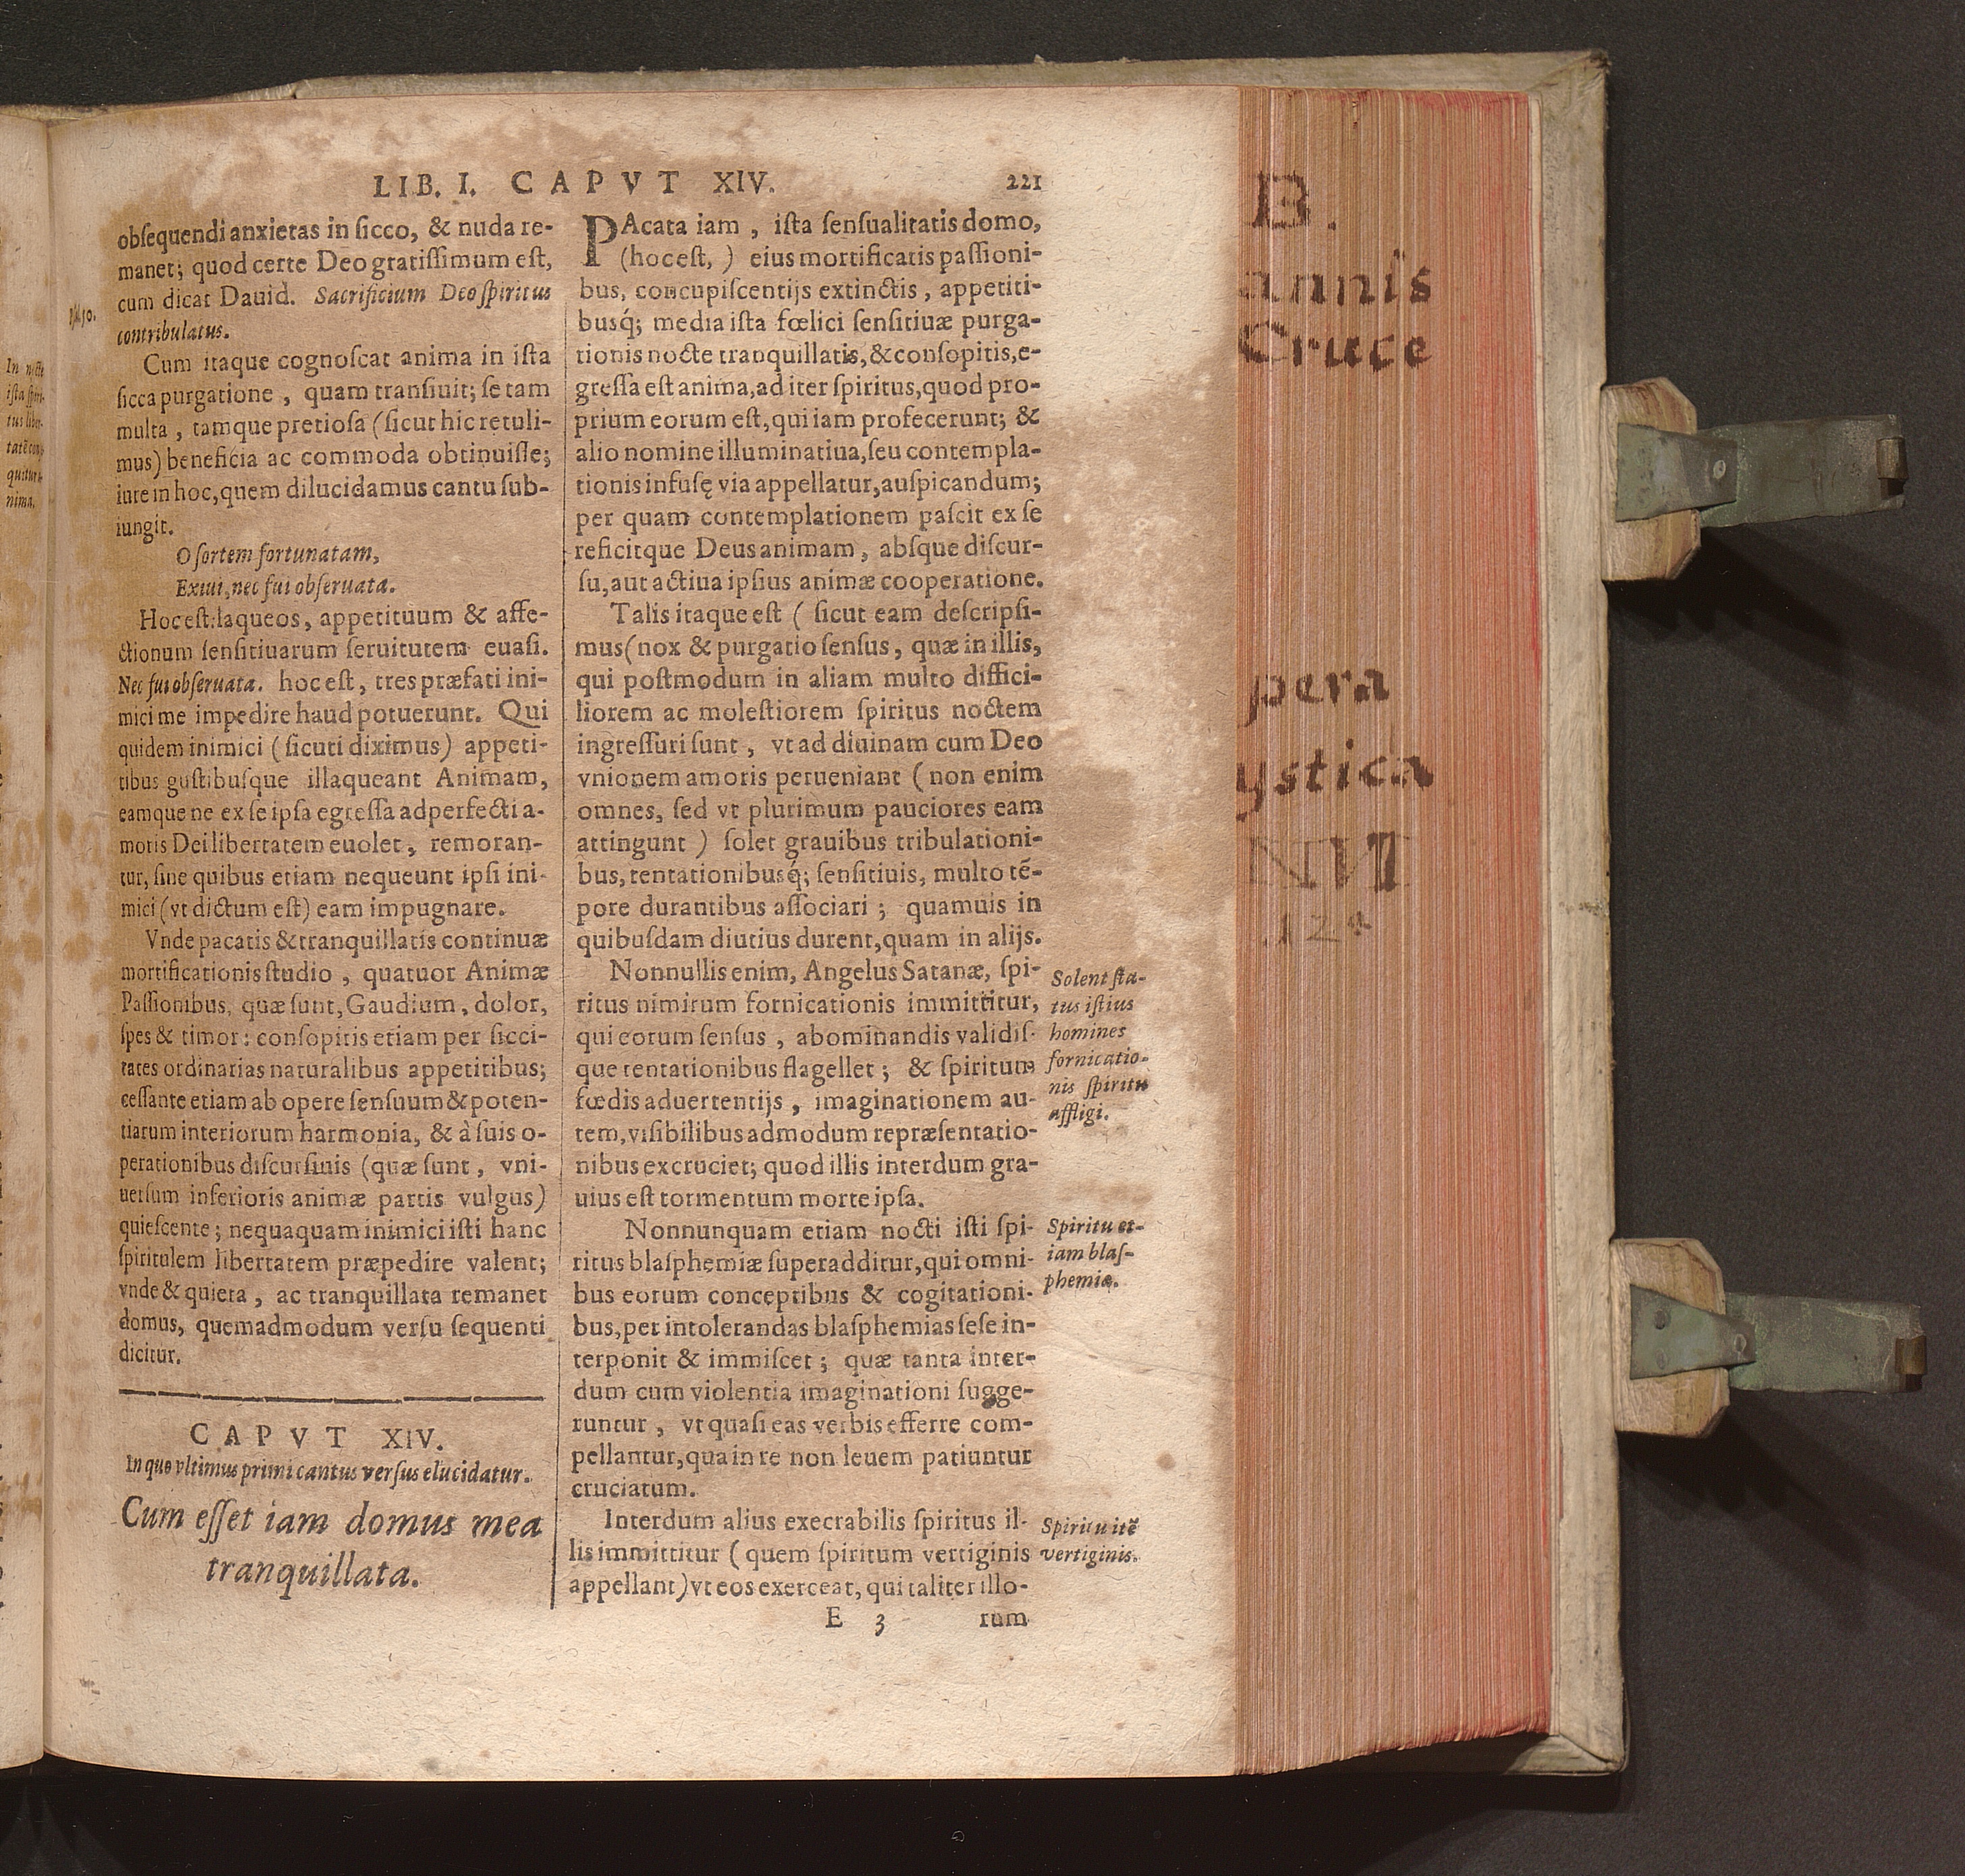 LIB. I. CAPVT XIV. 221
obſequendi anxietas in ſicco, & nuda re-
manet; quod certe Deo gratiſſimum eſt,
cum dicat Dauid. Sacrificium Deo ſpiritus
contribulatus.
Cum itaque cognoſcat anima in iſta
ſicca purgatione, quam tranſiuit; ſe tam
multa, tamque pretioſa (ſicut hic retuli-
mus) beneficia ac commoda obtinuiſſe;
iure in hoc, quem dilucidamus cantu ſub-
iungit.
O ſortem fortunatam,
Exiui, nec fui obſeruata.
Hoc eſt: laqueos, appetituum & affe-
ctionum ſenſitiuarum ſeruitutem euaſi.
Nec fui obſeruata. hoc eſt, tres præfati ini-
mici me impedire haud potuerunt. Qui
quidem inimici (ſicuti diximus) appeti-
tibus guſtibuſque illaqueant Animam,
eamque ne ex ſe ipſa egreſſa ad perfecti a-
moris Dei libertatem euolet, remoran-
tur, ſine quibus etiam nequeunt ipſi ini-
mici (vt dictum eſt) eam impugnare.
Vnde pacatis & tranquillatis continuæ
mortificationis ſtudio, quatuor Animæ
Paſſionibus, quæ ſunt, Gaudium, dolor,
ſpes & timor: conſopitis etiam per ſicci-
tates ordinarias naturalibus appetitibus;
ceſſante etiam ab opere ſenſuum & poten-
tiarum interiorum harmonia, & à ſuis o-
perationibus diſcurſiuis (quæ ſunt, vni-
uerſum inferioris animæ partis vulgus)
quieſcente; nequaquam inimici iſti hanc
ſpiritulem libertatem præpedire valent;
vnde & quieta, ac tranquillata remanet
domus, quemadmodum verſu ſequenti
dicitur.
CAPVT XIV.
In quo vltimus primi cantus verſus elucidatur.
Cum eſſet iam domus mea
tranquillata.
PAcata iam, iſta ſenſualitatis domo,
(hoc eſt,) eius mortificatis paſſioni-
bus, concupiſcentijs extinctis, appetiti-
buſq́; media iſta fœlici ſenſitiuæ purga-
tionis nocte tranquillatis, & conſopitis, e-
greſſa eſt anima, ad iter ſpiritus, quod pro-
prium eorum eſt, qui iam profecerunt; &
alio nomine illuminatiua, ſeu contempla-
tionis infuſę via appellatur, auſpicandum;
per quam contemplationem paſcit ex ſe
reficitque Deus animam, abſque diſcur-
ſu, aut actiua ipſius animæ cooperatione.
Talis itaque eſt ( ſicut eam deſcripſi-
mus( nox & purgatio ſenſus, quæ in illis,
qui poſtmodum in aliam multo diffici-
liorem ac moleſtiorem ſpiritus noctem
ingreſſuri ſunt, vt ad diuinam cum Deo
vnionem amoris perueniant (non enim
omnes, ſed vt plurimum pauciores eam
attingunt) ſolet grauibus tribulationi-
bus, tentationibusq́; ſenſitiuis, multo tẽ-
pore durantibus aſſociari; quamuis in
quibuſdam diutius durent, quam in alijs.
Nonnullis enim, Angelus Satanæ, ſpi-
ritus nimirum fornicationis immittitur,
qui eorum ſenſus, abominandis validiſ-
que tentationibus flagellet; & ſpiritum
fœdis aduertentijs, imaginationem au-
tem, viſibilibus admodum repræſentatio-
nibus excruciet; quod illis interdum gra-
uius eſt tormentum morte ipſa.
Nonnunquam etiam nocti iſti ſpi-
ritus blaſphemiæ ſuperadditur, qui omni-
bus eorum conceptibus & cogitationi-
bus, per intolerandas blaſphemias ſeſe in-
terponit & immiſcet; quæ tanta inter-
dum cum violentia imaginationi ſugge-
runtur, vt quaſi eas verbis efferre com-
pellantur, qua in re non leuem patiuntur
cruciatum.
Interdum alius execrabilis ſpiritus il-
lis immittitur (quem ſpiritum vertiginis
appellant) vt eos exerceat, qui taliter illo-
E 3 rum
Solent ſta-
tus iſtius
homines
fornicatio-
nis ſpiritu
affligi.
Spiritu et-
iam blaſ-
phemiæ.
Spiritu itẽ
vertiginis.
B.
annis
Cruce
pera
ystica